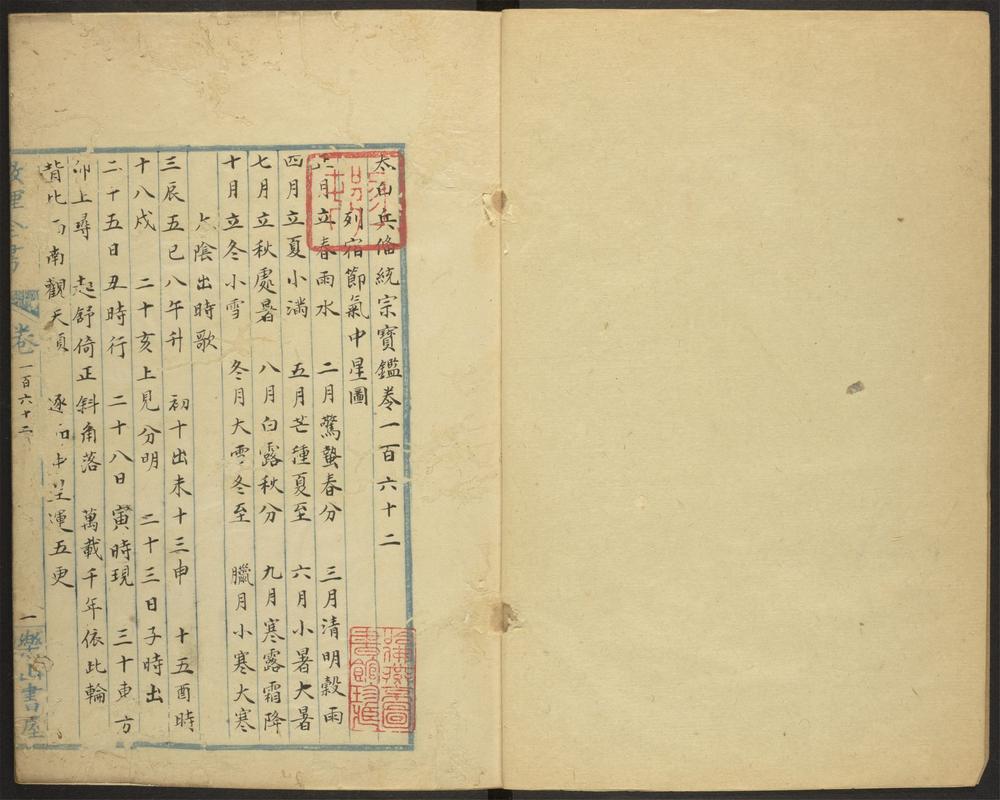 太白兵備統宗寶鑑卷一百六十二
列宿節氣中星圖
正月立春雨水 二月驚蟄春分 三月清明穀雨
四月立夏小滿 五月芒種夏至 六月小暑大暑
七月立秋處暑 八月白露秋分 九月寒露霜降
十月立冬小雪 冬月大雪冬至 臘月小寒大寒
六陰出時歌
三辰五巳八午升 初十出未十三申 十五酉時
十八戌 二十亥上見分明 二十三日子時出
二十五日丑時行 二十八日寅時現 三十東方
卯上尋 起舒倚正斜角落 萬載千年依此輪
背北面南觀天頂 逐 中星運五更
全書 卷一百六十二
一 樂山書屋